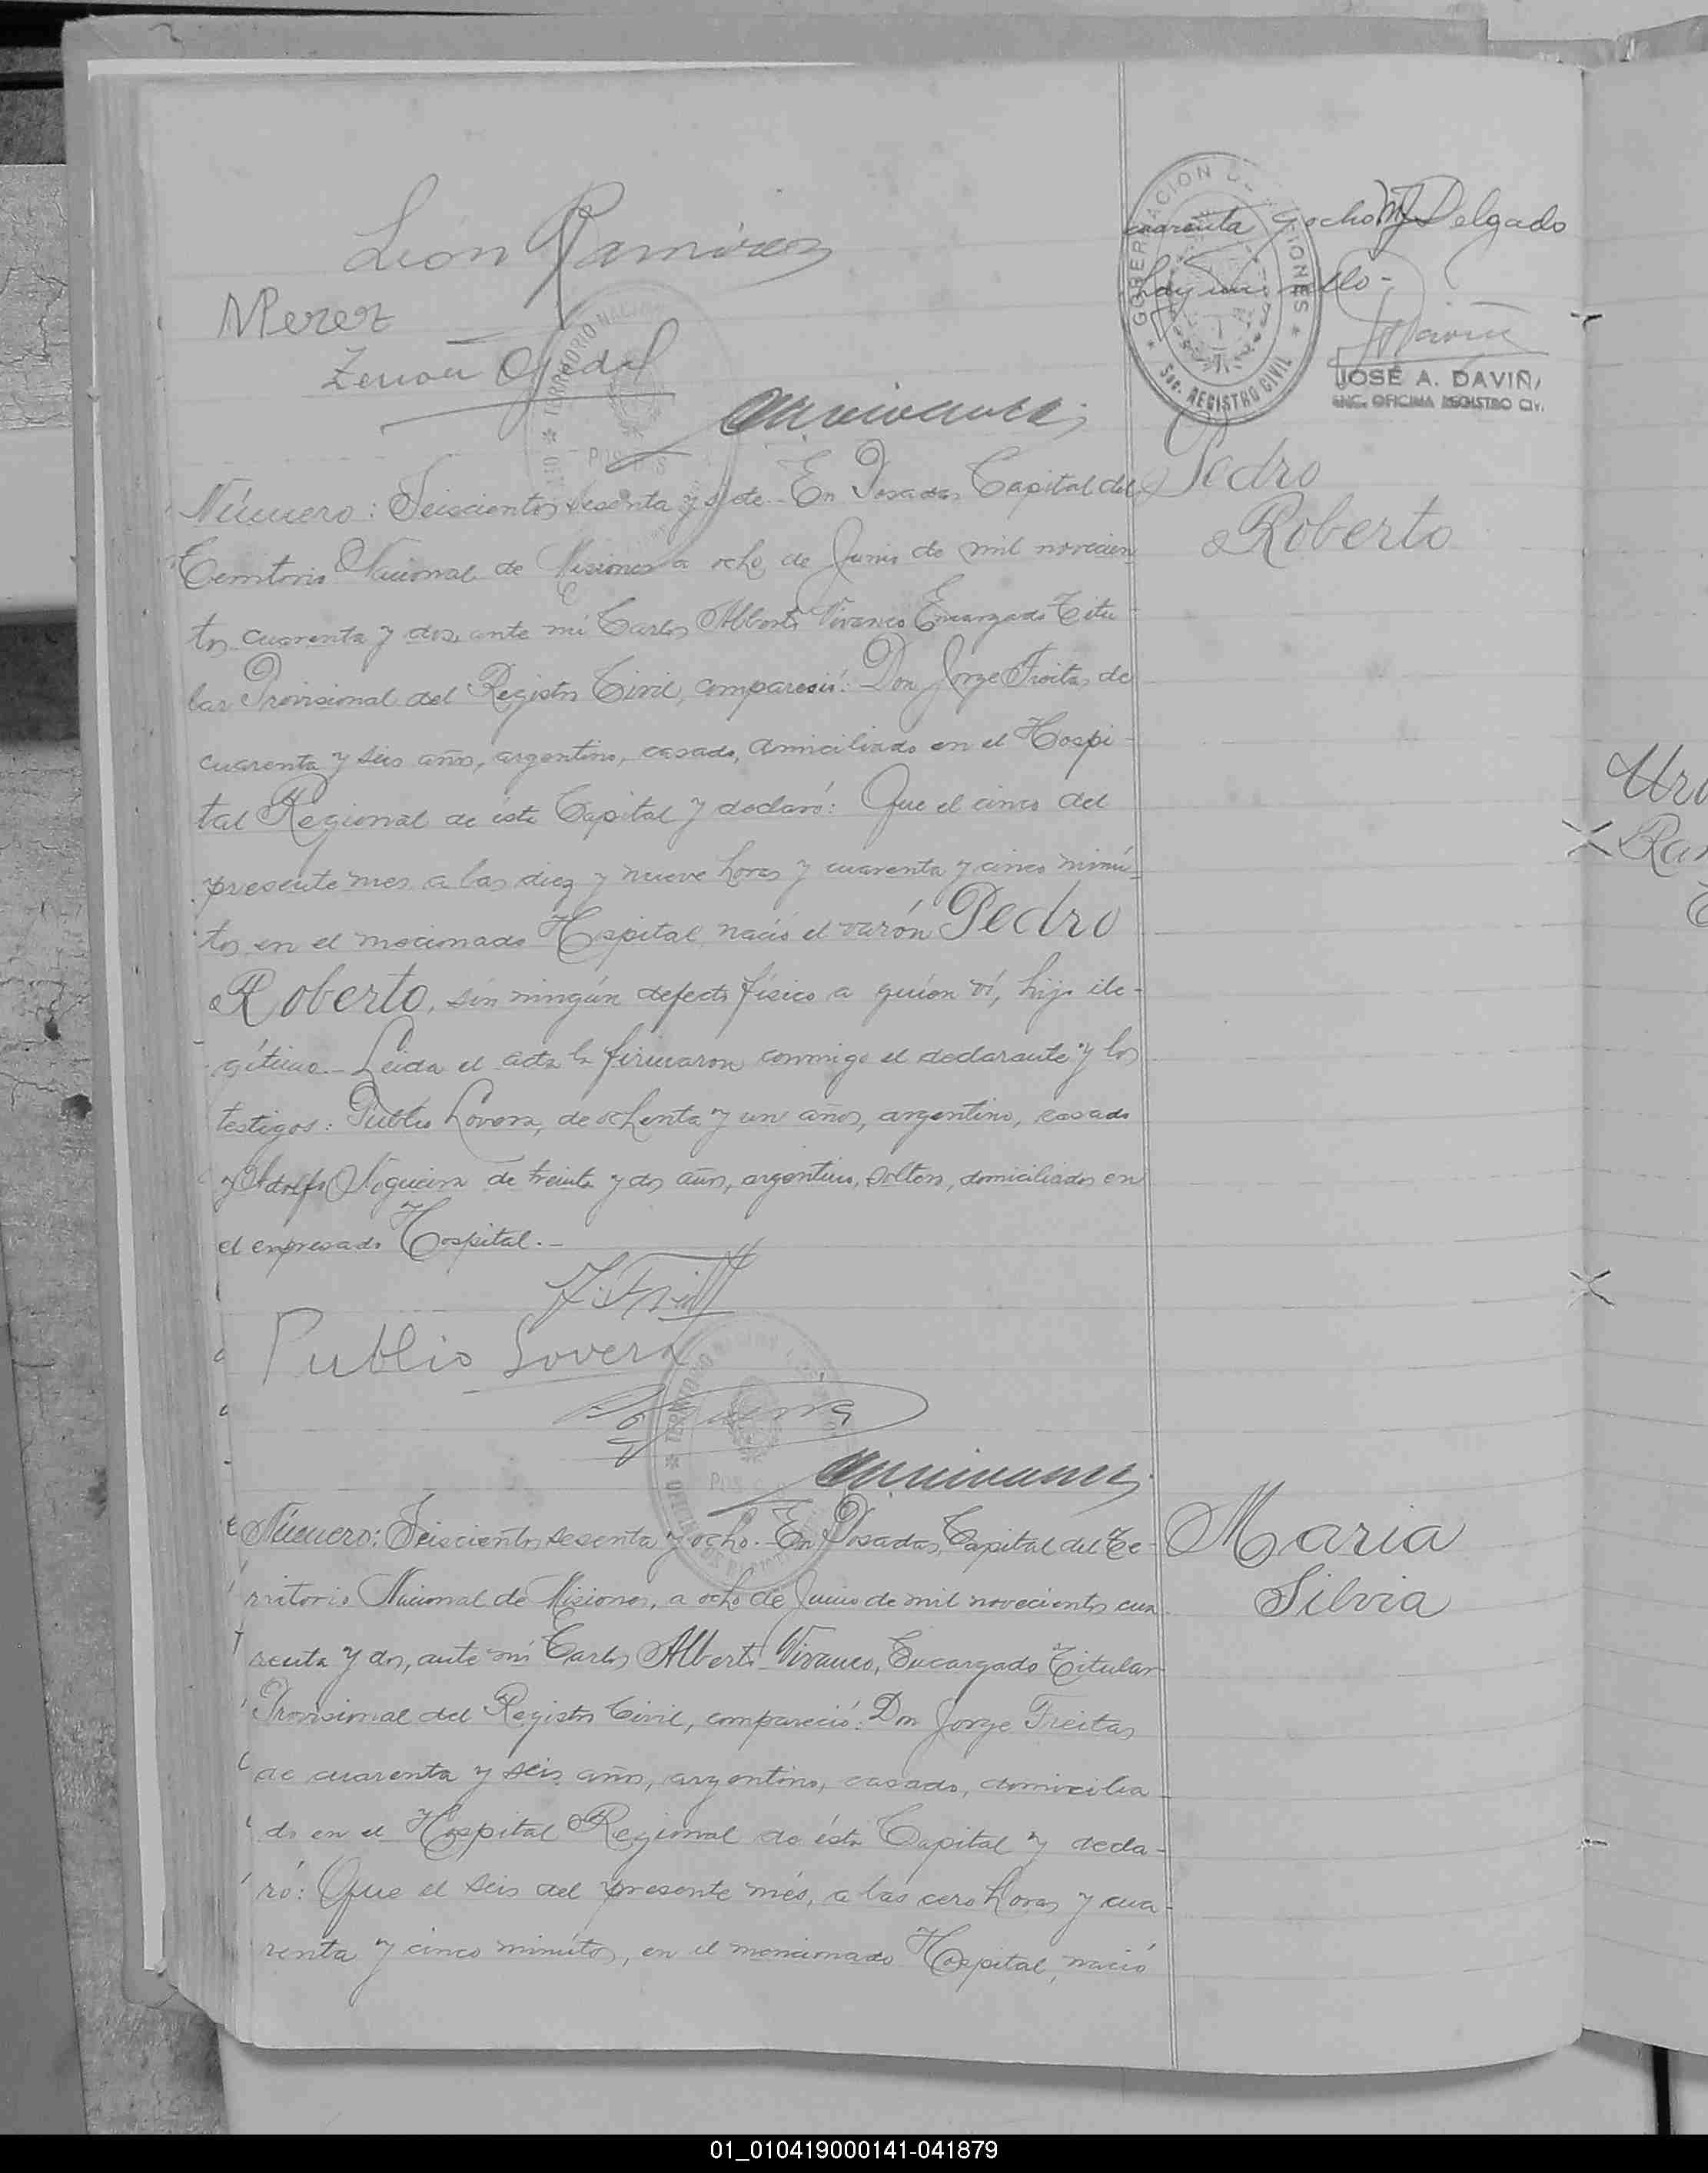 cuarenta y ocho MJ Delgado
León Ramirez
hay un sello -
NPerez
Zenon Ojeda
GOBERNACION DE MISIONES
Sec. REGISTRO CIVIL
JOSÉ A. DAVIÑA
ENC. OFICINA REGISTRO CIV.
TERRITORIO NACIONAL
POSADAS
Número: Seiscientos sesenta y siete.- En Posadas, Capital del
Pedro
Roberto
Territorio Nacional de Misiones a ocho de Junio de mil novecien-
tos cuarenta y dos, ante mi Carlos Alberto Vivanco Encargado Titu-
lar Provisional del Registro Civil, compareció: Don Jorge Freitas de
cuarenta y seis años, argentino, casado, domiciliado en el Hospi-
tal Regional de ésta Capital y declaró: Que el cinco del
presente mes a las diez y nueve horas y cuarenta y cinco minú-
tos en el mecionado Hospital, nació el varón Pedro
Roberto, sin ningún defecto físico a quíen ví, hijo ile-
gítimo.- Leida el acta la firmaron conmigo el declarante y los
testigos: Publio Lovera, de ochenta y un años, argentino, casado
y Adolfo Nogueira de treinta y dos años, argentino, soltero, domiciliados en
el expresado Hospital.-
Publio Lovera
TERRITORIO NACIONAL
POSADAS
Número: Seiscientos sesenta y ocho.- En Posadas, Capital del Te-
Maria
Silvia
rritorio Nacional de Misiones, a ocho de Junio de mil novecientos cua-
renta y dos, ante mí Carlos Alberto Vivanco, Encargado Titular
Provisional del Registro Civil, compareció: Don Jorge Freitas
de cuarenta y seis años, argentino, casado, domicilia-
do en el Hospital Regional de ésta Capital y decla-
ró: Que el seis del presente més, a las cero horas y cua-
renta y cinco minútos, en el mencionado Hospital, nació
Ram
01_010419000141-041879